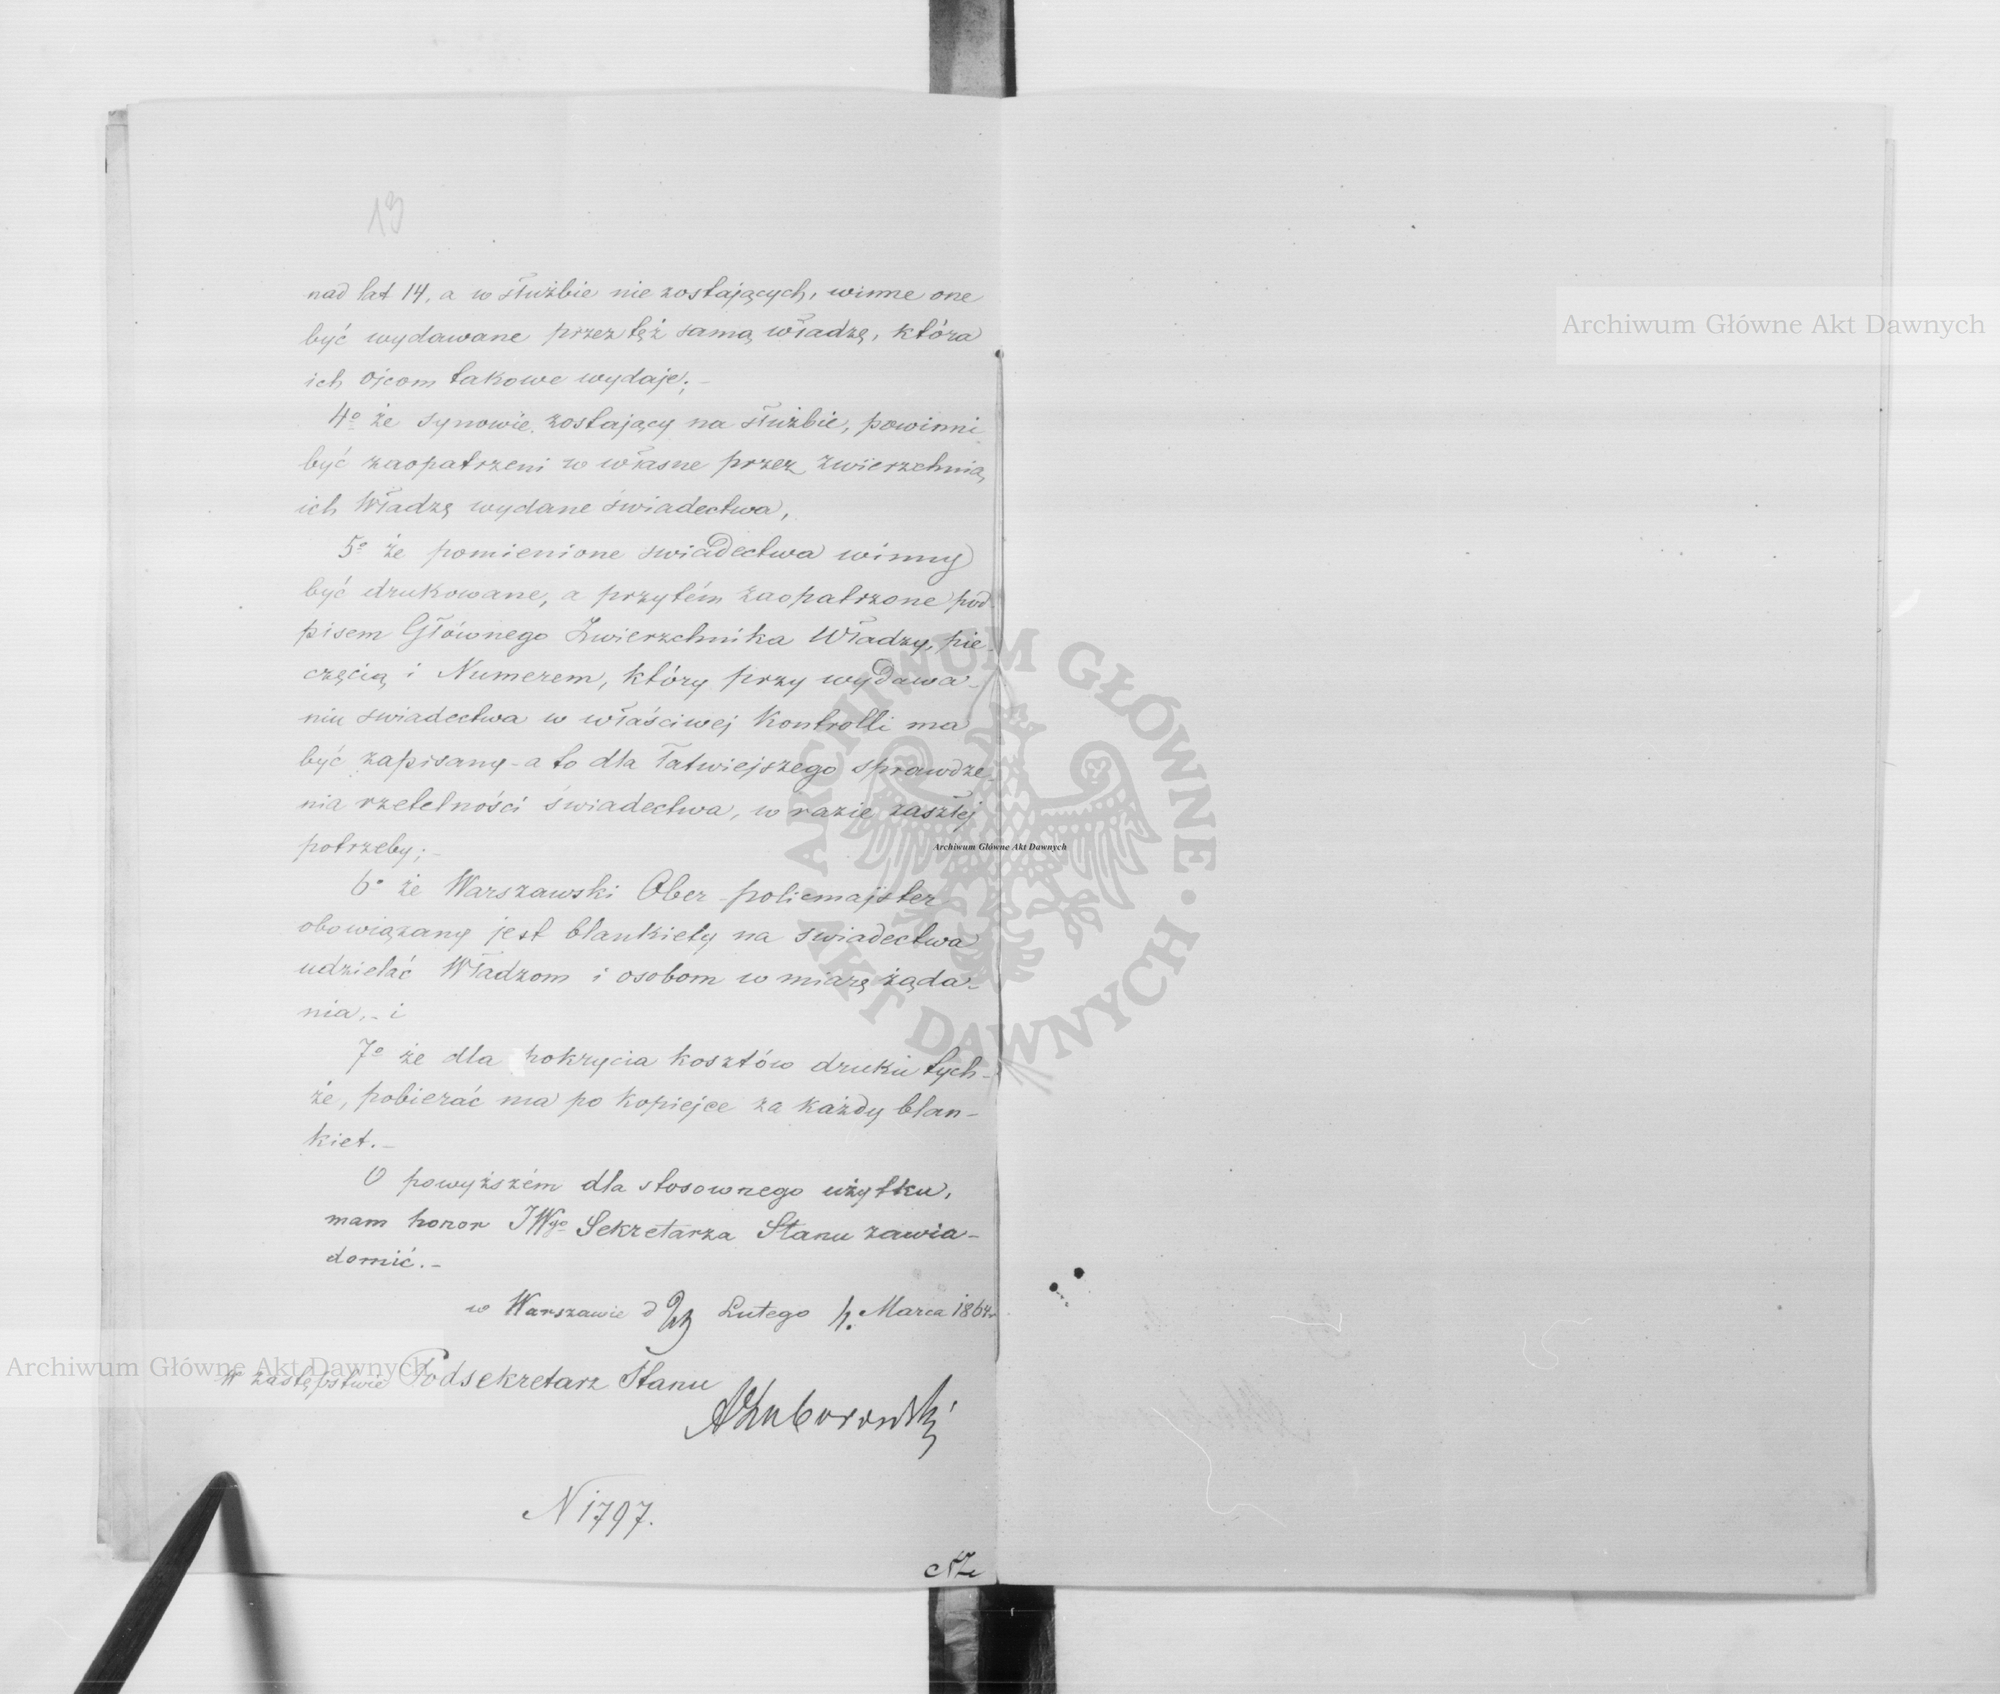 13
nad lat 14, a w służbie nie zostających, winne one
być wydawane przez też samą władzę, która
ich ojcom takowe wydaje;–
4o że synowie zostający na służbie, powinni
być zaopatrzeni w własne przez zwierzchnią
ich Władzę wydane świadectwa,
5o że pomienione swiadectwa winny
być drukowane, a przytém zaopatrzone pod-
pisem Głównego Zwierzchnika Władzy, pie-
częcią i Numerem, który przy wydawa-
niu swiadectwa w właściwej Kontrolli ma
być zapisany – a to dla łatwiejszego sprawdze-
nia rzetelności świadectwa, w razie zaszłej
potrzeby;–
6o że Warszawski Ober-policmajster
obowiązany jest blankiety na swiadectwa
udzielać Władzom i osobom w miarę żąda-
nia,– i
7o że dla pokrycia kosztów druku tych-
że, pobierać ma po kopiejce za każdy blan-
kiet.–
O powyższém dla stosownego użytku,
mam honor JWgo Sekretarza Stanu zawia-
domić.–
w Warszawie d Lutego Marca 1864r
W zastępstwie Podsekretarz Stanu
N 1797.
Archiwum Główne Akt Dawnych
Archiwum Główne Akt Dawnych
Archiwum Główne Akt Dawnych
ARCHIWUM GŁÓWNE · AKT DAWNYCH ·